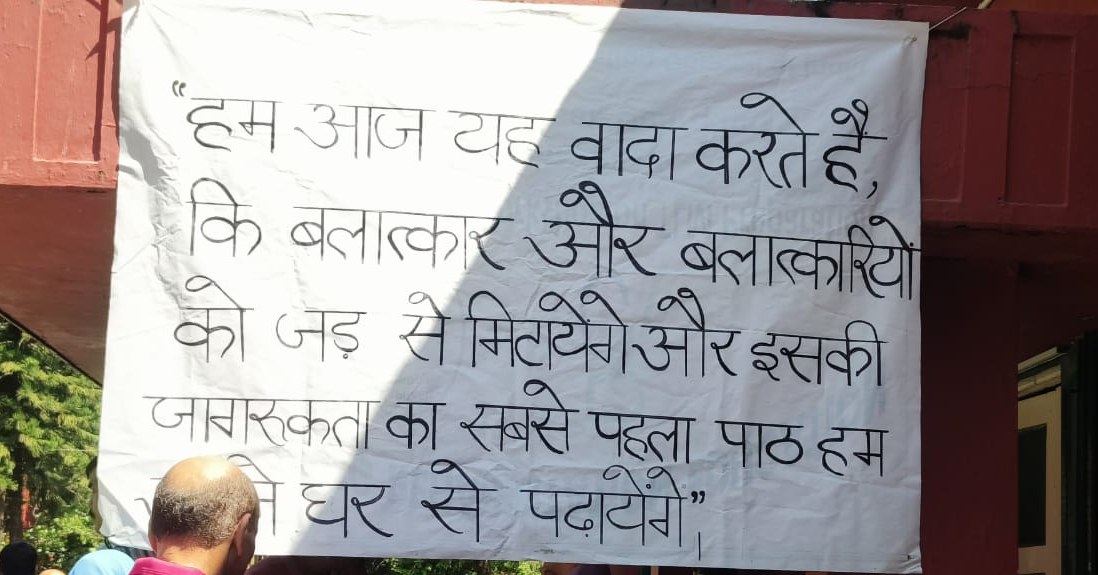 “हम आज यह वादा करते है,
कि बलात्कार और बलात्कारियों
को जड़ से मिटायेंगे और इसकी
जागरूकता का सबसे पहला पाठ हम
घर से पढ़ायेंगे”।